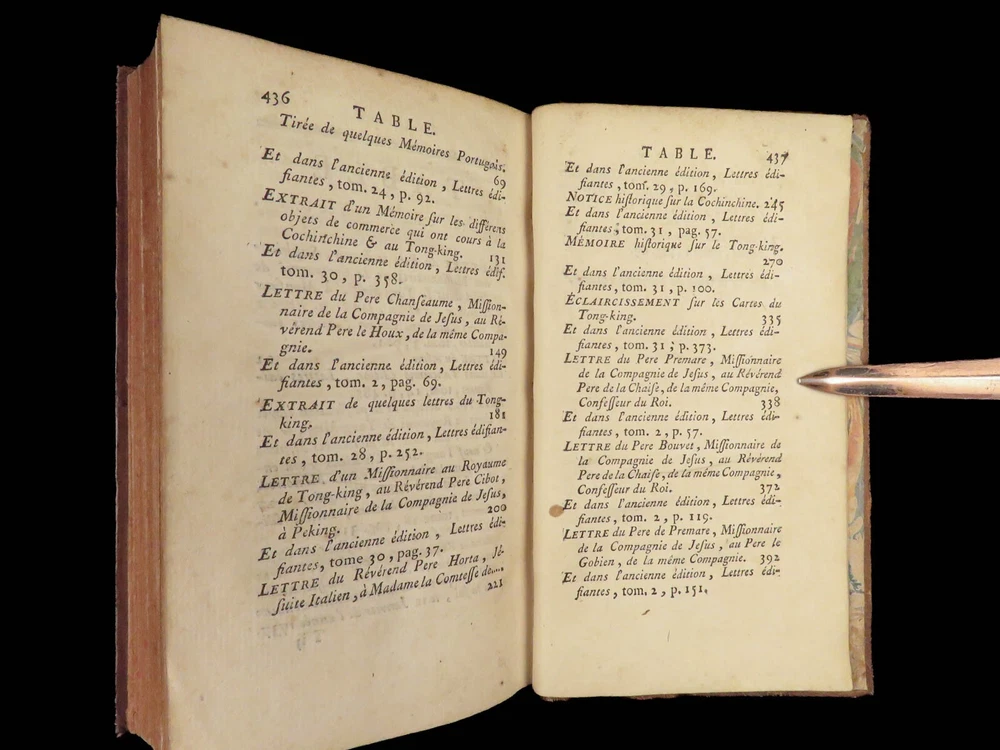 436
TABLE.
Tirée de quelques Mémoires Portugais.
69
Et dans l'ancienne édition, Lettres édi-
fiantes, tom. 24, p. 92.
EXTRAIT d'un Mémoire ſur les différens
objets de commerce qui ont cours à la
Cochinchine & au Tong-king. 131
Et dans l'ancienne édition, Lettres édif.
tom. 30, p. 358.
LETTRE du Pere Chanſeaume, Miſſion-
naire de la Compagnie de Jeſus, au Ré-
vérend Pere le Houx, de la même Compa-
gnie. 149
Et dans l'ancienne édition, Lettres édi-
fiantes, tom. 2, pag. 69.
EXTRAIT de quelques lettres du Tong-
king. 181
Et dans l'ancienne édition, Lettres édifian-
tes, tom. 28, p. 252.
LETTRE d'un Miſſionnaire au Royaume
de Tong-king, au Révérend Pere Cibot,
Miſſionnaire de la Compagnie de Jeſus,
à Peking. 200
Et dans l'ancienne édition, Lettres édi-
fiantes, tome 30, pag. 37.
LETTRE du Révérend Pere Horta, Jé-
ſuite Italien, à Madame la Comteſſe de....
221
TABLE. 437
Et dans l'ancienne édition, Lettres édi-
fiantes, tom. 29, p. 169.
NOTICE hiſtorique ſur la Cochinchine. 245
Et dans l'ancienne édition, Lettres édi-
fiantes, tom. 31, pag. 57.
MÉMOIRE hiſtorique ſur le Tong-king.
270
Et dans l'ancienne édition, Lettres édi-
fiantes, tom. 31, p. 100.
ÉCLAIRCISSEMENT ſur les Cartes du
Tong-king. 335
Et dans l'ancienne édition, Lettres édi-
fiantes, tom. 31; p. 373.
LETTRE du Pere Premare, Miſſionnaire
de la Compagnie de Jeſus, au Révérend
Pere de la Chaiſe, de la même Compagnie,
Confeſſeur du Roi. 338
Et dans l'ancienne édition, Lettres édi-
fiantes, tom. 2, p. 57.
LETTRE du Pere Bouvet, Miſſionnaire de
la Compagnie de Jeſus, au Révérend
Pere de la Chaiſe, de la même Compagnie,
Confeſſeur du Roi. 372
Et dans l'ancienne édition, Lettres édi-
fiantes, tom. 2, p. 119.
LETTRE du Pere de Premare, Miſſionnaire
de la Compagnie de Jeſus, au Pere le
Gobien, de la même Compagnie. 392
Et dans l'ancienne édition, Lettres édi-
fiantes, tom. 2, p. 151.